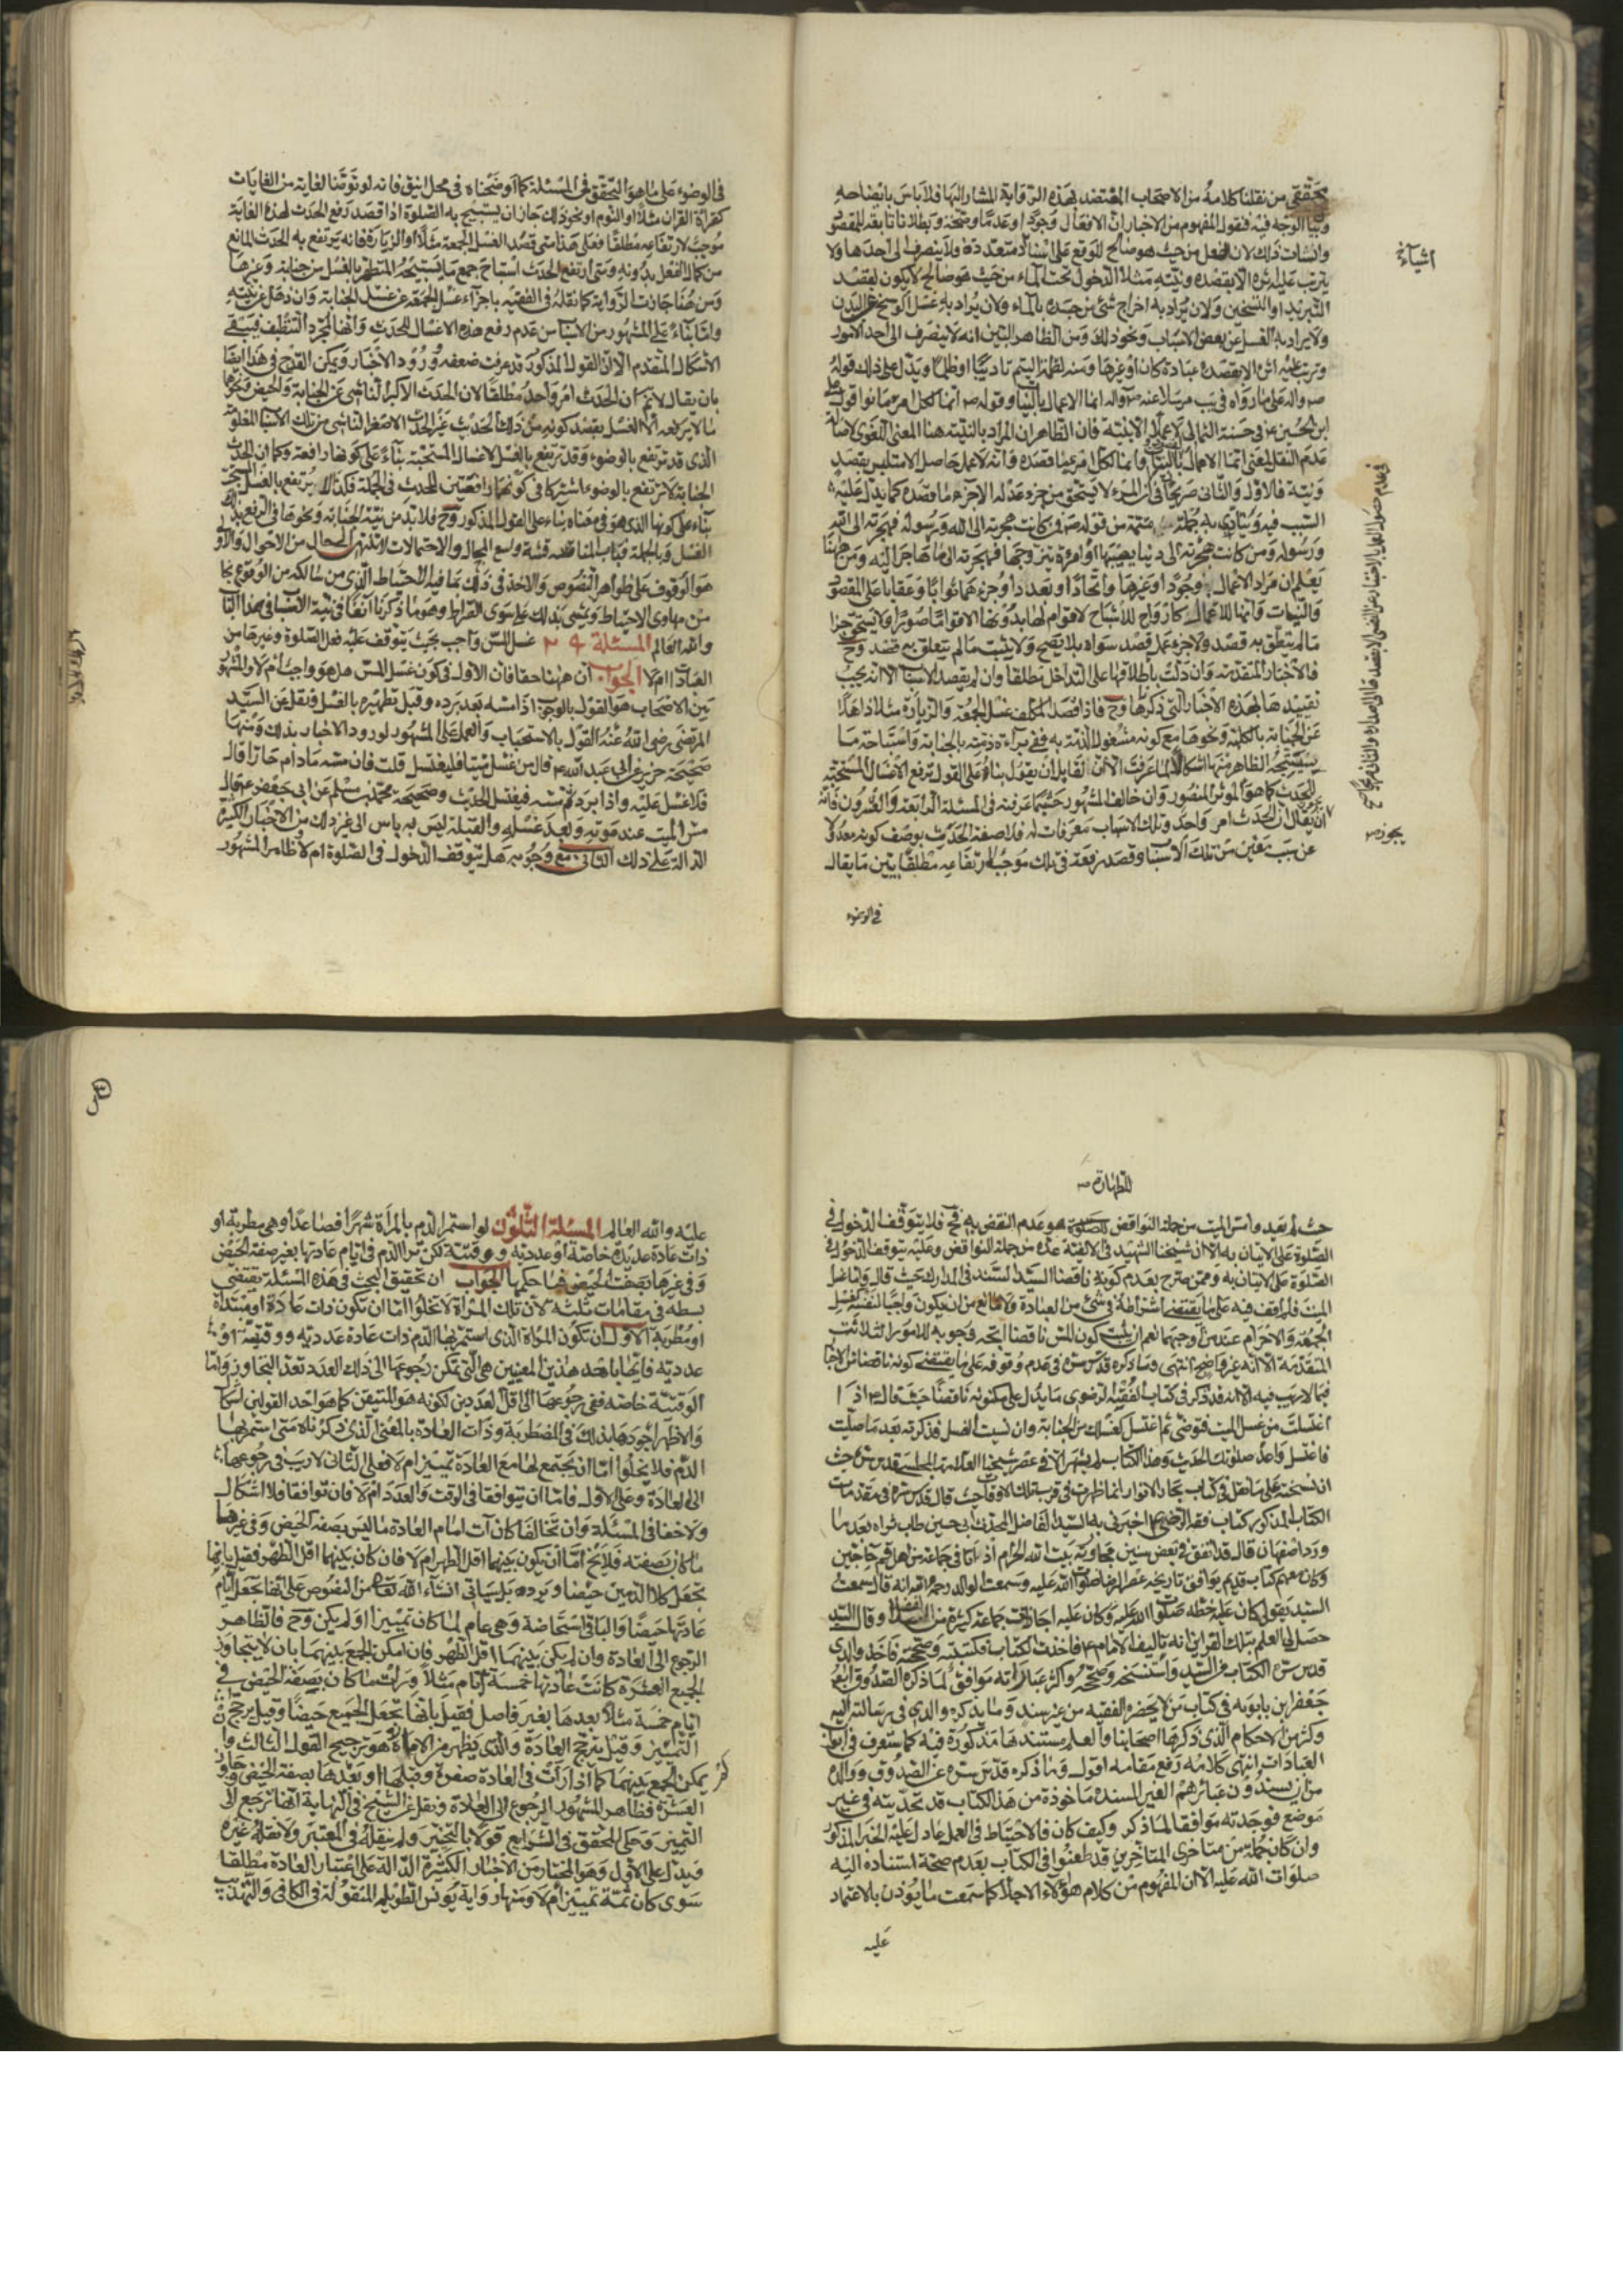 من نقلنا كلامه من الاصحاب المعتضد بهذه الرواية المشار اليها فلا باس بايضاحه
الوجه فيه فنقول المفهوم من الاخبار ان الافعال وجودا وعدما وصحة وبطلانا تابعة للقصود
والنيات وذلك لان الفعل من حيث هو صالح للوقوع على انحاء متعددة فلا ينصرف الى احدها ولا
يترتب عليه اثره الا بقصده ونيته مثلا الدخول تحت الماء من حيث هو صالح لان يكون لقصد
التبريد او التسخين ولان يراد به اخراج شئ من جسده بالماء ولان يراد به غسل الوسخ عن البدن
ولا يراد به الغسل عن بعض الاسباب ونحو ذلك ومن الظاهر البين انه لا ينصرف الى احد الامور
ويترتب عليه اثره الا بقصده عبادة كان او غيرها ومنه لطمة اليتيم تاديبا او ظلما ويدل على ذلك قوله
ص واله على ما رواه في يب مرسلا عنه ص واله انما الاعمال بالنيات وقوله ص انما لكل امرئ ما نوى وقول علي
ابن الحسين ع في حسنة الثمالي لا عمل الا بنية فان الظاهر ان المراد بالنية هنا المعنى اللغوي لاصالة
عدم النقل بمعنى انما الاعمال بالنيات وانما لكل امرئ ما قصده وانه لا عمل حاصل الا متلبس بقصد
ونية فالاول والثاني صريحا في ان المرء لا يستحق من جزء عمله الا جزء ما قصده كما يدل عليه
السبب فيه وينادي به جملة تتمة من قوله ص فمن كانت هجرته الى الله ورسوله فهجرته الى الله
ورسوله ومن كانت هجرته الى دنيا يصيبها او امراة يتزوجها فهجرته الى ما هاجر اليه ومن هنا
يعلم ان مدار الاعمال وجودا وغيرها واتحادا وتعددا وجزء هما ثوابا وعقابا على القصود
والنيات وانها للاعمال كالارواح للاشباح لا قوام لها بدونها الا قواما صوريا ولا يستحق جزا
ما لم يتعلق به قصد ولا جزء عمل قصد سواه بلا يصح ولا يثبت ما لم يتعلق به قصد وح
فالاخبار المتقدمة وان دلت باطلاقها على التداخل مطلقا وان لم يقصد الاسباب الا انه يجب
تقييدها بهذه الاخبار التي ذكرناها وح فاذا قصد المكلف غسل الجمعة والزيارة مثلا ذاهلا
عن الجنابة بالكلية ونحوها مع كونه مشغول الذمة به ففي براءة ذمته بالجنابة واستباحة ما
يستبيحه الطاهر منها اشكال لما عرفت الا ان لقايل ان يقول بناء على القول برفع الاغسال المستحبة
للحدث كما هو المؤثر المنصور وان خالف المشهور حسبما عرفته في المسئلة الرابعة والعشرون فانه
ان يقال ان الحدث امر واحد وتلك الاسباب معرفات له فلا صفة الحدث بوصف كونه
عن سبب معين من تلك الاسباب وقصد رفعه في تلك موجب لارتفاعه مطلقا يبين ما يقال
في الوضوء
اشياء
يجوز ص
في الوضوء على ما هو التحقق في المسئلة كما اوضحناه في محل انيق فانه لو توضا لغاية من الغايات
كقراءة القران مثلا او النوم او نحو ذلك جاز ان يستبيح به الصلوة اذا قصد رفع الحدث لهذه الغاية
موجب لارتفاعه مطلقا فعلى هذا متى قصد الغسل الجمعة مثلا او الزيارة فانه يرتفع به الحدث المانع
من كمال الفعل بدونه ومتى ارتفع الحدث استباح جميع ما يستبيحه المتطهر بالغسل من جنابة وغيرها
ومن هنا جازت الرواية كما نقله في الفقيه باجزاء غسل الجمعة عن غسل الجنابة وان ذهل عن نيته
واما بناء على المشهور من الاسباب من عدم رفع هذه الاغسال للحدث وانها لمجرد التنظيف فيبقى
الاشكال المتقدم الا ان القول المذكور قد عرفت ضعفه وورود الاخبار ويمكن القدح في هذا ايضا
بان يقال لا نم ان الحدث امر واحد مطلقا لان الحدث الاكبر الناشى عن الجنابة والحيض ونحوهما
ما لا يرفعه الا الغسل بقصد كونه من ذلك الحدث غير الحدث الاصغر الناشى من تلك الاسباب المعلومة
الذي قد ترتفع بالوضوء وقد ترتفع بالغسل لاغسال المستحبة بناء على كونها رافعة وكما ان الحدث
الجنابة لا ترتفع بالوضوء اشتركا في كونهما رافعتين للحدث في الجملة فكذلك لا يرتفع بالغسل المستحب
بناء على كونها الذي هو في معناه بناء على القول المذكور وح فلا بد من نية الجنابة ونحوها في الرفع بذلك
الغسل وبالجملة فباب المناقصة فيه واسع المجال والاحتمالات لا تنتهى الى حال من الاحوال والاولى
هو الوقوف على ظواهر النصوص والاخذ في ذلك بما فيه الاحتياط الذي من سالكه من الوقوع بما
من مهاوي الاحتياط ويمشي بذلك على سوى القراط وهو ما ذكرنا آنفا في نية الاسباب في هذا الباب
والله العالم المسئلة ٢٩ غسل المس واجب بحيث يتوقف عليه فعل الصلوة وغيرها من
العبادات ام لا الجواب ان ههنا مقامان الاول في كون غسل المس هل هو واجب ام لا والمشهور
بين الاصحاب هو القول بالوجوب اذا مسه بعد برده وقبل تطهيره بالغسل ونقل عن السيد
المرتضى رضى الله عنه القول بالاستحباب والعمل على المشهور لورود الاخبار بذلك ومنها
صحيحة حريز عن ابي عبد الله ع قال من غسل ميتا فليغتسل قلت فان مسه ما دام حارا قال
فلا غسل عليه واذا برد ثم مسه فيغتسل الحديث وصحيحة محمد بن مسلم عن ابي جعفر ع قال
مس الميت عند موته وبعد غسله والقبلة ليس به باس الى غير ذلك من الاخبار الكثيرة
الدالة على ذلك الثاني مع وجوبه هل يتوقف الدخول في الصلوة ام لا ظاهر المشهور
للطهارة ص
حيث لم يعد وا مس الميت من جملة النواقض للصلوة هو عدم النقض به وح فلا يتوقف الدخول في
الصلوة على الاتيان به الا ان شيخنا الشهيد في الالفية عده من جملة النواقض وعليه يتوقف الدخول في
الصلوة على الاتيان به وممن صرح بعدم كونه ناقضا السيد السند في المدارك حيث قال واما غسل
الميت فلم اقف فيه على ما يقتضي اشتراطه في شئ من العبادة ولا مانع من ان يكون واجبا لنفسه كغسل
الجمعة والاحرام عند من اوجبهما نعم ان ثبت كون المس ناقضا اتجه وجوبه للامور الثلاثة
المتقدمة الا انه غير واضح انتهى وما ذكره قدس سره في عدم وقوفه على ما يقتضي كونه ناقضا من الاخبار
فيما لا ريب فيه الا انه قد ذكر في كتاب الفقيه الرضوي ما يدل على كونه ناقضا حيث قال ع اذا
اغتسلت من غسل الميت فتوضئ ثم اغتسل كغسلك من الجنابة وان نسيت الغسل فذكرته بعد ما صليت
فاغتسل واعد صلوتك الحديث وهذا الكتاب لم يشتهر الا في عصر شيخنا العلامة المجلسي قدس سره حيث
ان نسخته على ما نقل في كتاب بحار الانوار انما ظهرت في قرب تلك الاوقات حيث قال قدس سره في مقدمات
الكتاب المذكور كتاب فقه الرضوي ع اخبرني به السيد الفاضل المحدث حسين طاب ثراه بعد ما
ورد اصفهان قال قد اتفق في بعض سنين مجاورتي بيت الله الحرام ان اتاني جماعة من اهل قم حاجين
وكان معهم كتاب قديم يوافق تاريخه عصر الرضا صلوات الله عليه وسمعت الوالد رحمه الله انه قال سمعت
السيد يقول كان عليه خطه صلوات الله عليه وكان عليه اجازات جماعة كثيرة من الفضلا وقال السيد
حصل لي العلم بتلك القراين انه تاليف الامام ع فاخذت الكتاب وكتبته وصححته فاخذ والدي
قدس سره الكتاب من السيد واستنسخه وصححه واكثر عباراته موافق لما ذكره الصدوق ابو
جعفر ابن بابويه في كتاب من لا يحضره الفقيه من غير سند وما يذكره والدي في رسالته اليه
وكثير من الاحكام الذي ذكرها اصحابنا ولا يعلم مستندها مذكورة فيه كما ستعرف في ابواب
العبادات انتهى كلامه رفع مقامه اقول وما ذكره قدس سره عن الصدوق ووالده
من ان عبائرهم الغير المسنده ماخوذة من هذا الكتاب قد تحديته في غير
موضع فوجدته موافقا لما ذكر وكيف كان فالاحتياط في العمل عادل عليه الخبر المذكور
وان كان جملة من متاخرى المتاخرين قد طعنوا في الكتاب بعدم صحة استناده اليه
صلوات الله عليه الا ان المفهوم من كلام هؤلاء الاجلاء كما سمعت ما يؤذن بالاعتماد
عليه
عليه والله العالم المسئلة الثلثون لو استمر الدم بالمراة شهرا فصاعدا وهي مضطربة او
ذات عادة عددية خاصة او عددية ووقتية لكن ترا الدم في ايام عادتها بغير صفة الحيض
وفي غيرها بصفة الحيض فما حكمها الجواب ان تحقيق البحث في هذه المسئلة يقتضى
بسطه في مقامات ثلثة لان تلك المراة لا تخلوا اما ان تكون ذات عادة او مبتداة
او مضطربة الاول ان تكون المراة الذي استمر بها الدم ذات عادة عددية ووقتية او
عددية فانها باحد هذين المعنيين هى التي تمكن رجوعها الى ذلك العدد بعد التجاوز واما
الوقتية خاصة ففي رجوعها الى اقل العددين لكونه هو المتيقن كما هو احد القولين اشكال
والاظهر اجودها بذلك في المضطربة وذات العادة بالمعنى الذي ذكرناه متى استمر بها
الدم فلا يخلوا اما ان يجتمع لها مع العادة تمييز ام لا فعلى الثاني لا ريب في رجوعها
الى العادة وعلى الاول فاما ان يتوافقا في الوقت والعدد ام لا فان توافقا فلا اشكال
ولا خفا في المسئلة وان تخالفا كان رات امام العادة ما ليس بصفة الحيض وفي غيرها
ما كان بصفته فلا يخ اما ان يكون بينهما اقل الطهر ام لا فان كان بينهما اقل الطهر فقيل بانها
تجعل كلا الدمين حيضا ويرده بل سياتى انشاء الله تعالى من النصوص على انها تجعل ايام
عادتها حيضا والباقي استحاضة وهى عام لما كان تمييزا او لم يكن وح فالظاهر
الرجوع الى العادة وان لم يكن بينهما اقل الطهر فان امكن الجمع بينهما بان لا يتجاوز
الجميع العشرة كانت عادتها خمسة ايام مثلا ورات ما كان بصفة الحيض في
ايام خمسة مثلا بعدها بغير فاصل فقيل بانها تجعل الجميع حيضا وقيل يرجح
التمييز وقيل ترجح العادة والذي يظهر من الاخبار هو ترجيح القول الثالث وا
يمكن الجمع بينهما كما اذا رات في العادة صفرة وقبلها او بعدها بصفة الحيض وتجاوز
العشرة فظاهر المشهور الرجوع الى العادة ونقل عن الشيخ في النهاية انها ترجع الى
التمييز وحكى المحقق في الشرايع قولا بالتخيير ولم ينقله في المعتبر ولا نقله غيره
ويدل على الاول وهو المختار من الاخبار الكثيرة الدالة على اعتبار العادة مطلقا
سوى كان ثمة تمييز ام لا ومنها رواية يونس الطويلة المنقولة في الكافي والتهذيب